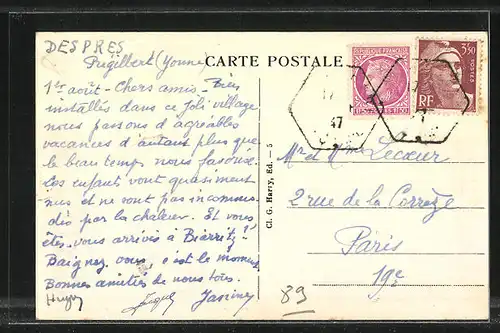 DESPRES
Prégilbert (Yonne)
CARTE POSTALE
1er août - Chers amis - Bien
installés dans ce joli village
nous passons d'agréables
vacances d'autant plus que
le beau temps nous favorise.
Les enfants vont quasiment
nus et ne sont pas incommo-
dés par la chaleur. Et vous
êtes-vous arrivés à Biarritz?
Baignez-vous, c'est le moment
Bonnes amitiés de nous tous.
Cl. G. Harry, Ed. - 5
REPUBLIQUE FRANÇAISE
POSTES 1F50
3F50
POSTES
RF
47
Mr et Mme Lecœur
2 rue de la Corrèze
Paris
19e
89